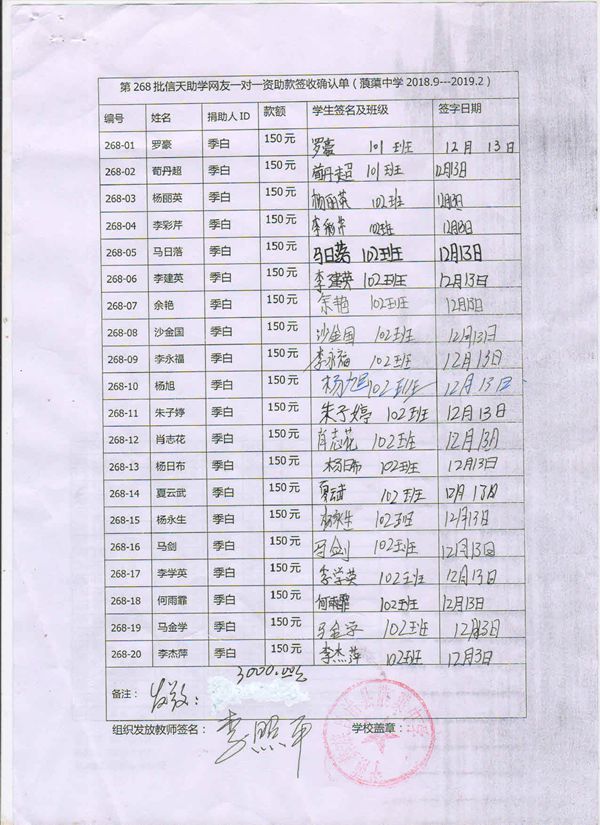 第 268 批信天助学网友一对一资助款签收确认单（蒗蕖中学 2018.9---2019.2）
编号 姓名 捐助人 ID 款额 学生签名及班级 签字日期
268-01 罗豪 季白 150 元 罗豪 101班 12月13日
268-02 荀丹超 季白 150 元 荀丹超 101班 12月13日
268-03 杨丽英 季白 150 元 杨丽英 102班 12月13日
268-04 李彩芹 季白 150 元 李彩芹 102班 12月13日
268-05 马日落 季白 150 元 马日落 102班 12月13日
268-06 李建英 季白 150 元 李建英 102班 12月13日
268-07 余艳 季白 150 元 余艳 102班 12月13日
268-08 沙金国 季白 150 元 沙金国 102班 12月13日
268-09 李永福 季白 150 元 李永福 102班 12月13日
268-10 杨旭 季白 150 元 杨旭 102班 12月13日
268-11 朱子婷 季白 150 元 朱子婷 102班 12月13日
268-12 肖志花 季白 150 元 肖志花 102班 12月13日
268-13 杨日布 季白 150 元 杨日布 102班 12月13日
268-14 夏云武 季白 150 元 夏云武 102班 12月13日
268-15 杨永生 季白 150 元 杨永生 102班 12月13日
268-16 马剑 季白 150 元 马剑 102班 12月13日
268-17 李学英 季白 150 元 李学英 102班 12月13日
268-18 何雨霏 季白 150 元 何雨霏 102班 12月13日
268-19 马金学 季白 150 元 马金学 102班 12月13日
268-20 李杰萍 季白 150 元 李杰萍 102班 12月3日
备注： 发放： 3000.00元
组织发放教师签名： 李照军 学校盖章：